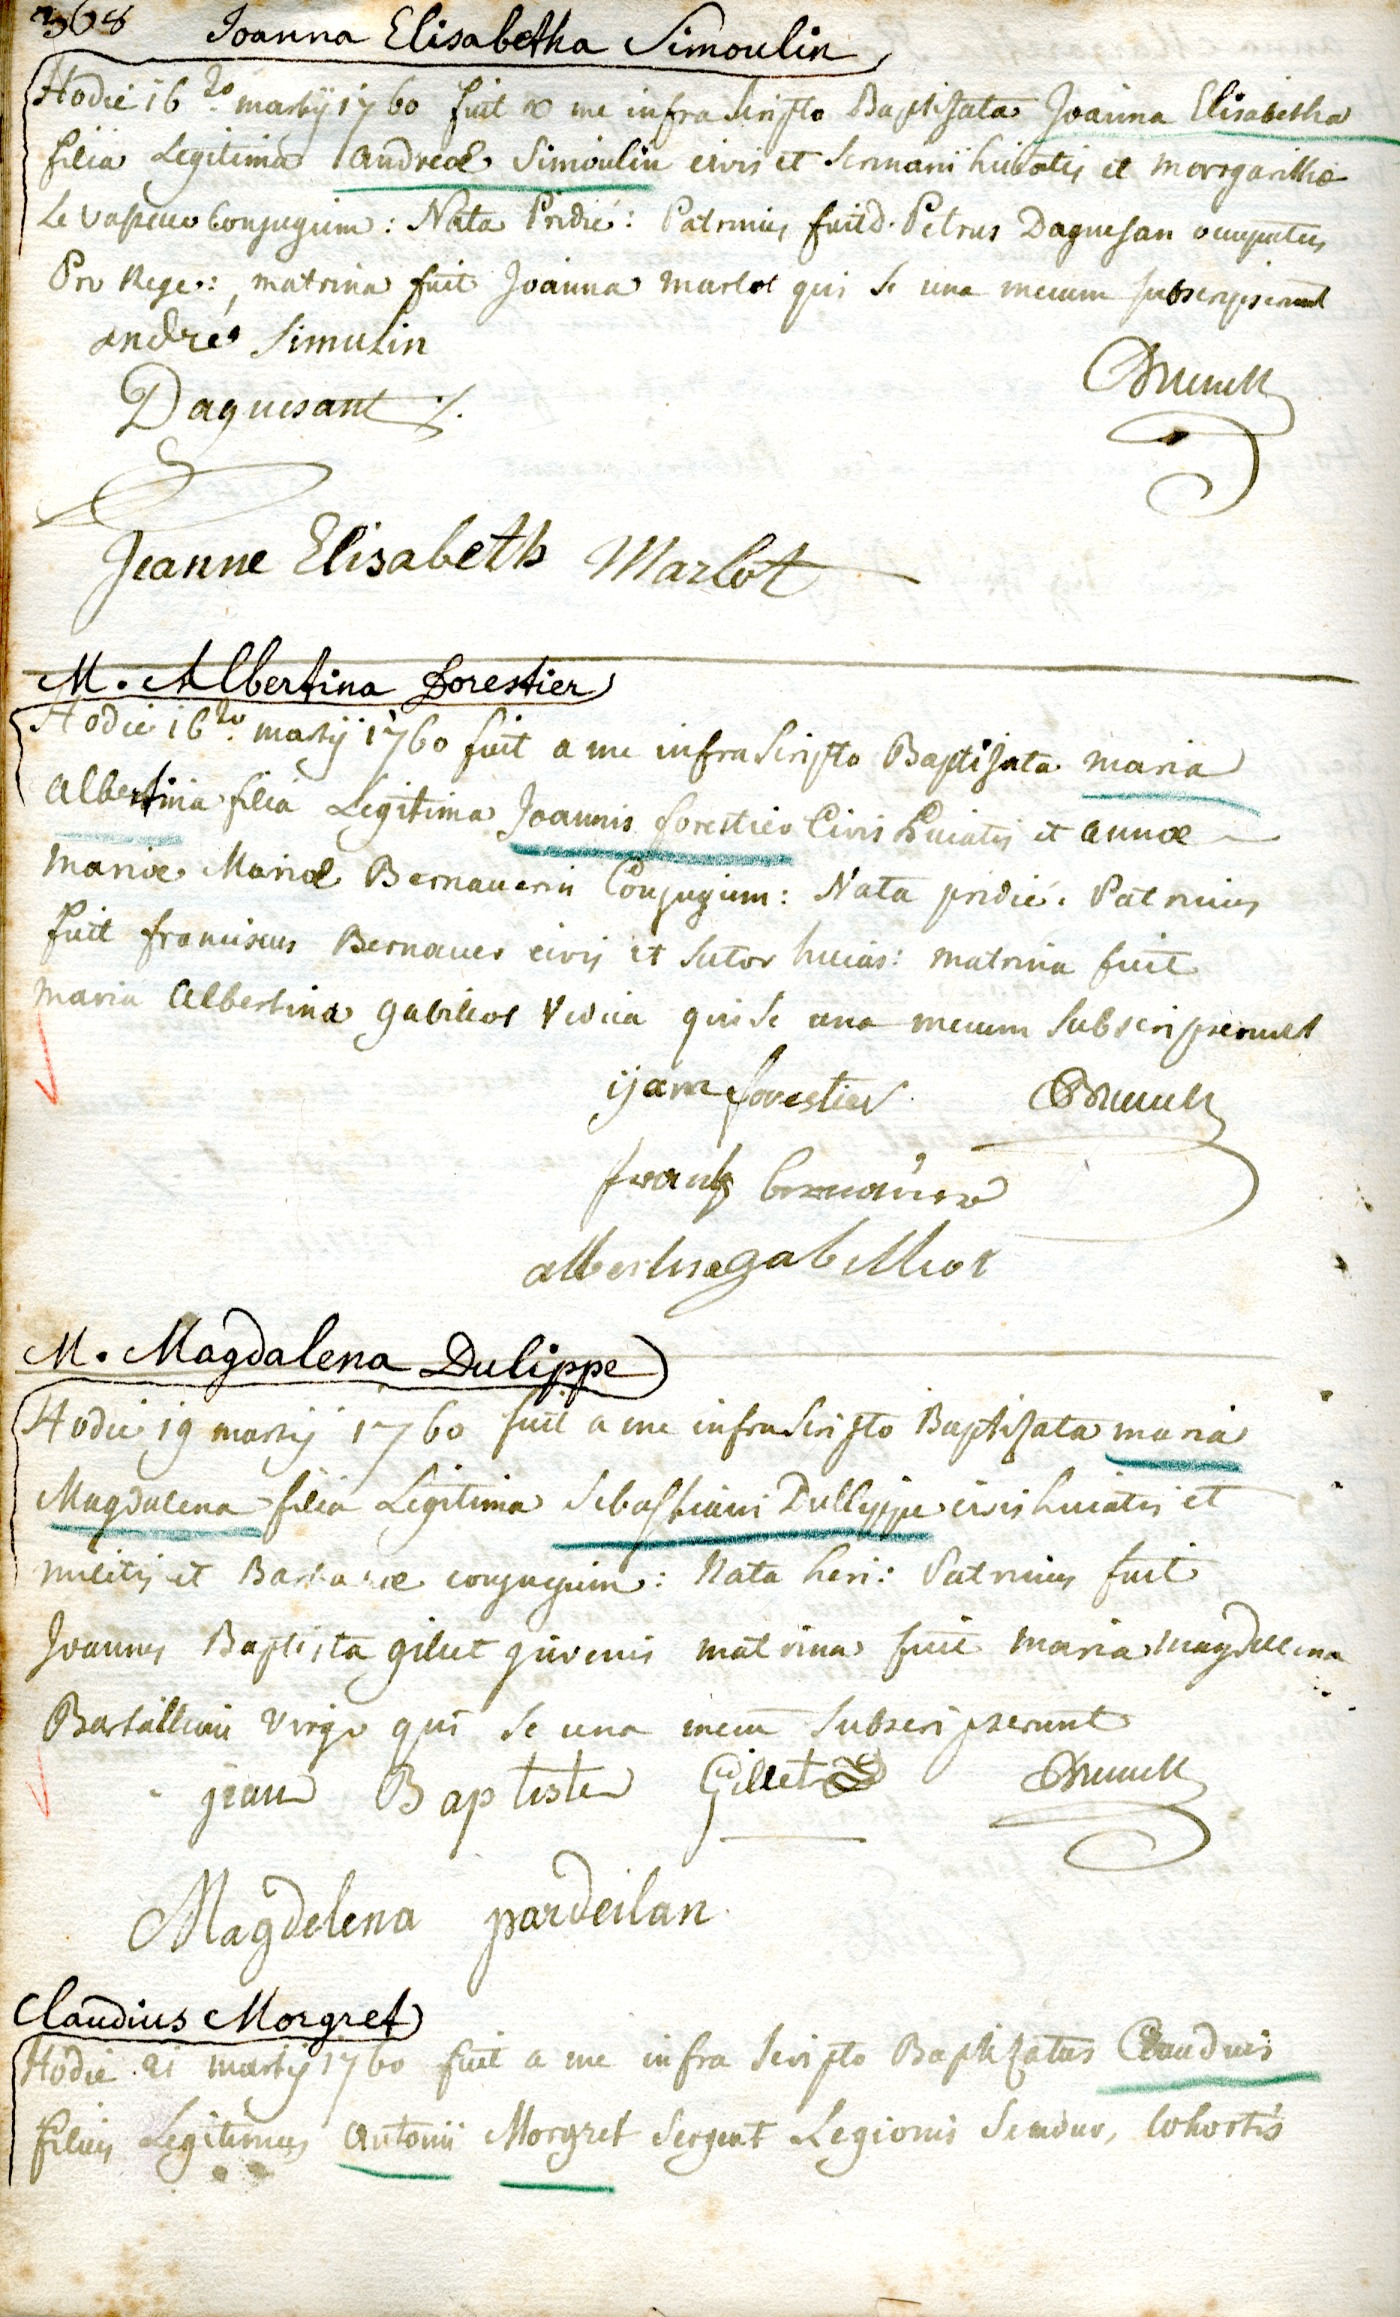 368 Joanna Elisabetha Simoulin
Hodie 16to martij 1760 fuit a me infra scripto Baptizata Joanna Elisabetha
filia Legitima Andreæ Simoulin civis et huiatis et Margarithæ
Le Conjugum: Nata Pridié: Patrinus fuit d. Petrus Daguesan
Pro Rege:, matrina fuit Joanna marlot qui se una mecum subscripserunt
andré Simulin
Daguesant
Jeanne Elisabeth Marlot
M. Albertina Forestier
Hodie 16to martij 1760 fuit a me infra scripto Baptizata maria
Albertina filia Legitima Joannis forestier Civis huiatis et annæ
mariæ Mariæ Bernauerin Conjugum: Nata pridié: Patrinus
fuit franciscus Bernauer civis et sutor huias: matrina fuit
maria Albertina gabileot Vidua qui se una mecum subscripserunt
forestier
frantz bernauer
albertine gabilliot
M. Magdalena Dulippe
Hodie 19 martij 1760 fuit a me infra scripto Baptizata maria
Magdalena filia Legitima Sebastiani Dullippe civis huiatis et
militis et Barbaræ conjugum: Nata heri: Patrinus fuit
Joannes Baptista gilet juvenis matrina fuit maria magdelena
virgo qui se una mecum subscripserunt
jean Baptiste Gillet
Magdelena pardeilan
Claudius Morgret
Hodie 21 martij 1760 fuit a me infra scripto Baptizatus Claudius
filius Legitimus Antonii Morgret sergent Legionis cohortis